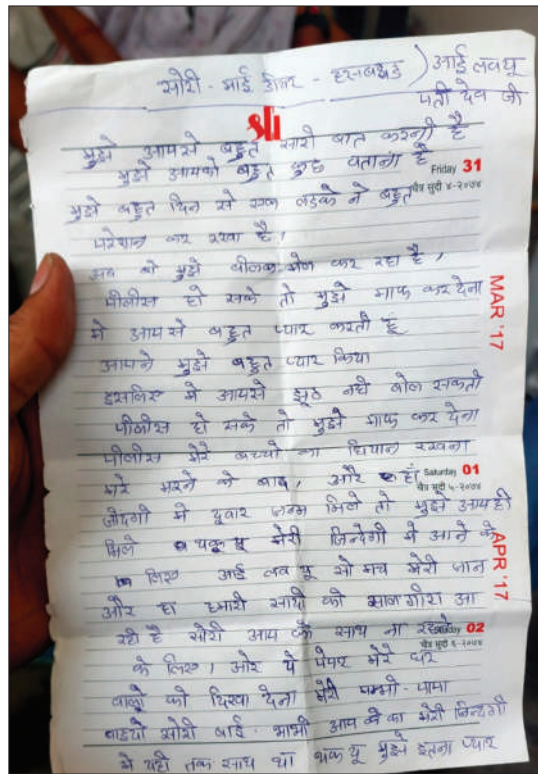 सोरी - माई डीयर - हसबेंड ) आई लव यू
पती देव जी
श्री
मुझे आपसे बहुत सारी बात करनी है
मुझे आपको बहुत कुछ बताना है
Friday 31
चैत्र सुदी ४-२०७४
मुझे बहुत दिन से एक लडके ने बहुत
परेशान कर रखा है,
अब वो मुझे बीलेक मेल कर रहा है,
MAR '17
पीलीस हो सके तो मुझे माफ कर देना
मे आपसे बहुत प्यार करती हूँ
आपने मुझे बहुत प्यार किया
इसलिए मे आपसे झूठ नही बोल सकती
पीलीस हो सके तो मुझे माफ कर देना
पीलीस मेरे बच्चो का धियान रखना
मेरे मरने के बाद, और हाँ
Saturday 01
चैत्र सुदी ५-२०७४
जीदगी मे दूबार जन्म मिले तो मुझे आप ही
मिले थेंक्यू मेरी जिन्देगी मे आने के
APR '17
लिए आई लव यू सो मच मेरी जान
और हा हमारी सादी की साल गीरा आ
रही है सोरी आप के साथ ना रहने
02
चैत्र सुदी ६-२०७४
के लिए, और ये पेपर मेरे घर
वालो को दिखा देना मेरी मम्मी - पापा
सोरी बाई - भाभी आप का मेरी जिन्दगी
मे यही तक साथ था थेंक यू मुझे इतना प्यार